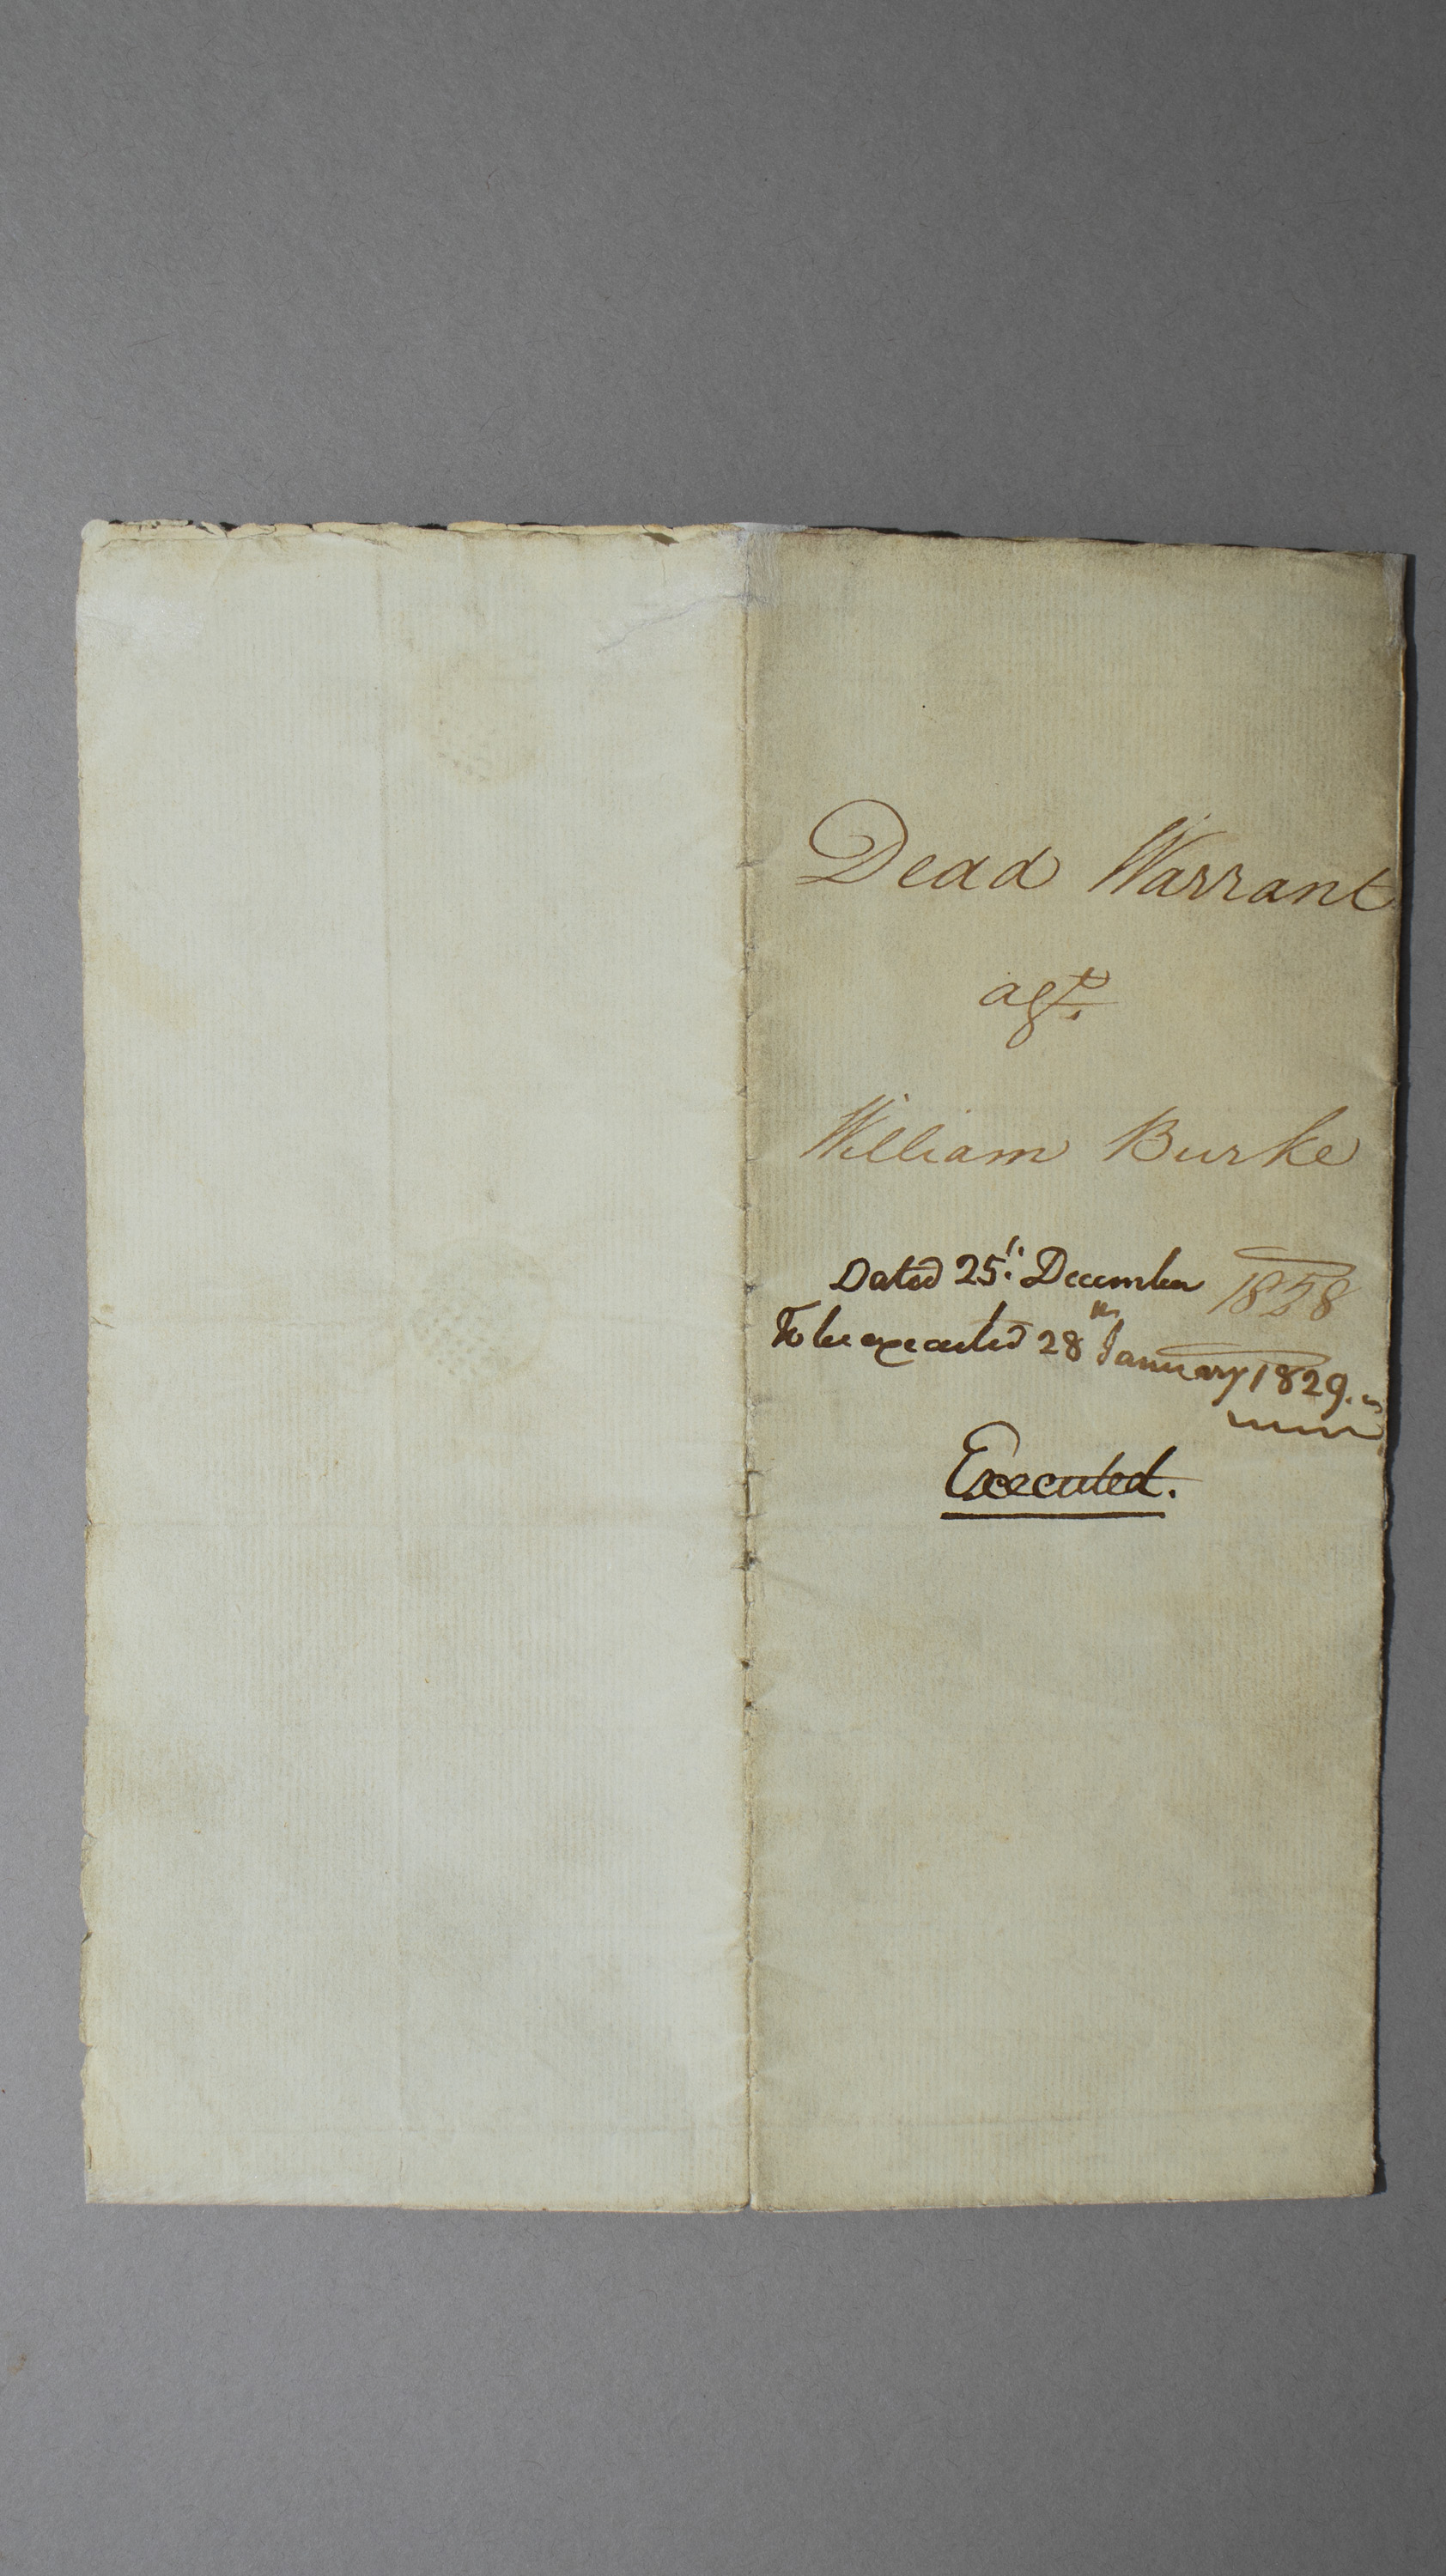 Dead Warrant
agt.
William Burke
1828
Dated 25th December
To be executed 28th January 1829.
Executed.